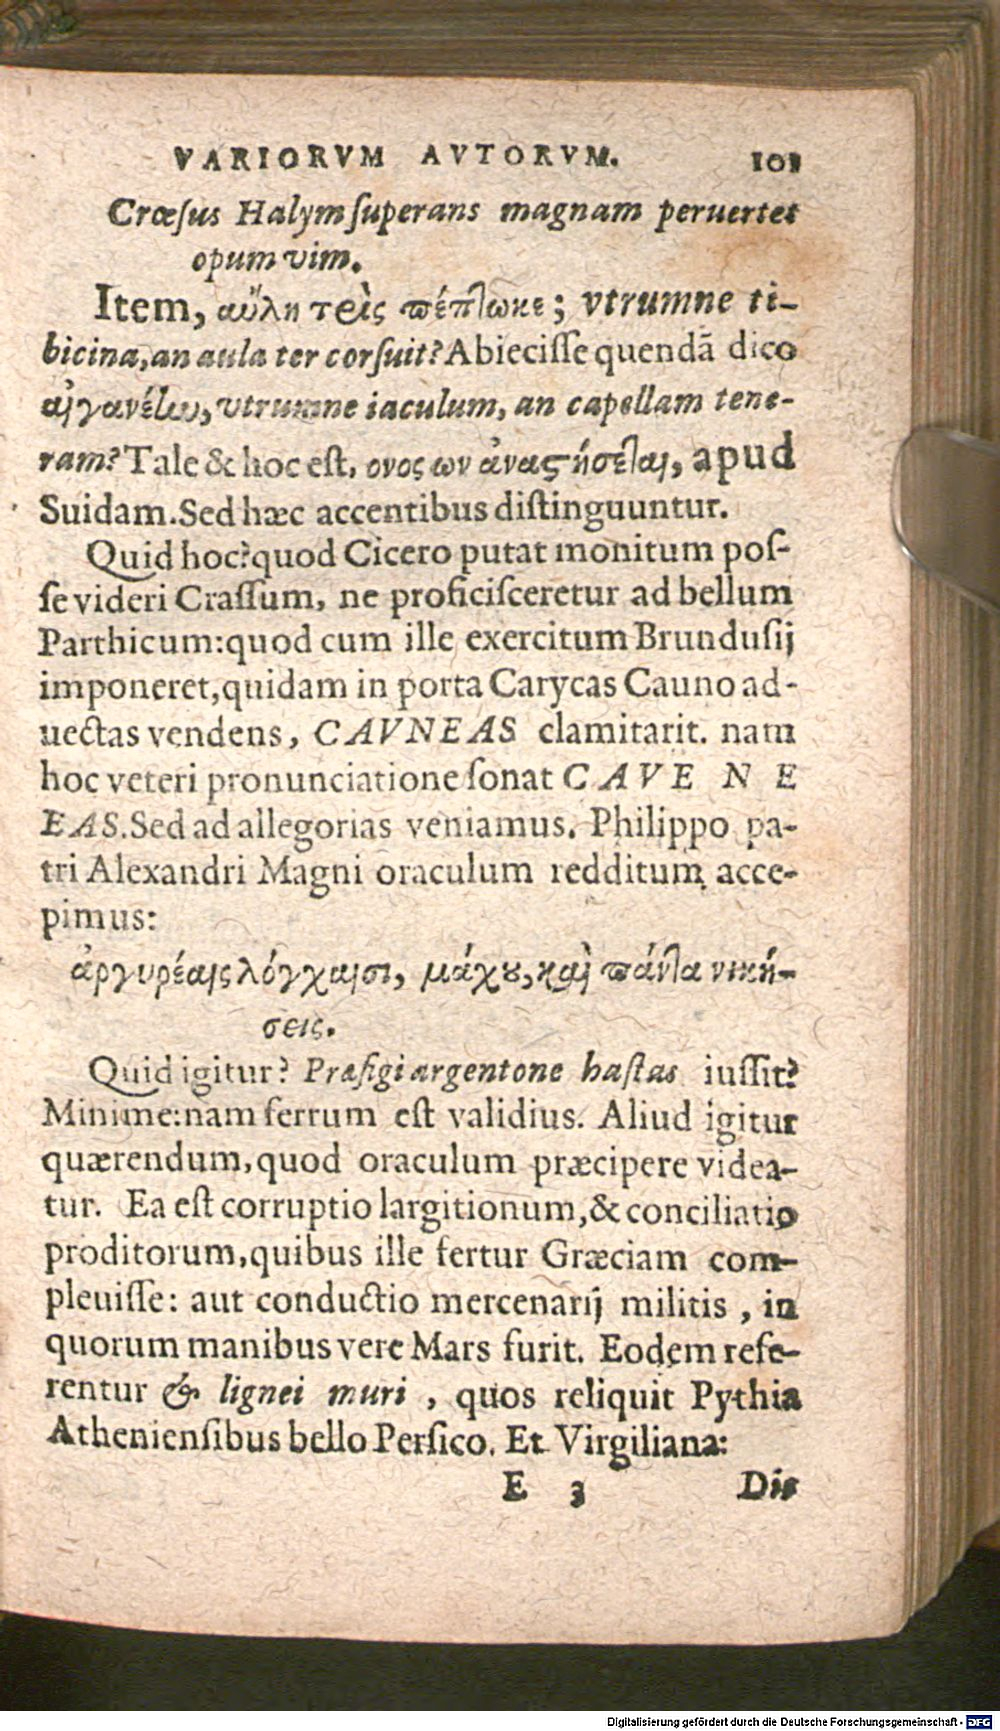 VARIORVM AVTORVM. 101
Crœſus Halym ſuperans magnam peruertet
opum vim.
Item, αὔλη τρὶς πέπτωκε; vtrumne ti-
bicina, an aula ter corſuit? Abieciſſe quendã dico
αἰγανέην, vtrumne iaculum, an capellam tene-
ram? Tale & hoc eſt, ονος ων ἀναστήσεται, apud
Suidam. Sed hæc accentibus diſtinguuntur.
Quid hoc? quod Cicero putat monitum poſ-
ſe videri Craſſum, ne proficiſceretur ad bellum
Parthicum: quod cum ille exercitum Brunduſij
imponeret, quidam in porta Carycas Cauno ad-
uectas vendens, CAVNEAS clamitarit. nam
hoc veteri pronunciatione ſonat CAVE NE
EAS. Sed ad allegorias veniamus. Philippo pa-
tri Alexandri Magni oraculum redditum acce-
pimus:
ἀργυρέαις λόγχαισι, μάχου, καὶ πάντα νική-
σεις.
Quid igitur? Præfigi argentone haſtas iuſſit?
Minime: nam ferrum eſt validius. Aliud igitur
quærendum, quod oraculum præcipere videa-
tur. Ea eſt corruptio largitionum, & conciliatio
proditorum, quibus ille fertur Græciam com-
pleuiſſe: aut conductio mercenarij militis, in
quorum manibus vere Mars furit. Eodem refe-
rentur & lignei muri, quos reliquit Pythia
Athenienſibus bello Perſico. Et Virgiliana:
E 3 Dis
Digitalisierung gefördert durch die Deutsche Forschungsgemeinschaft - DFG